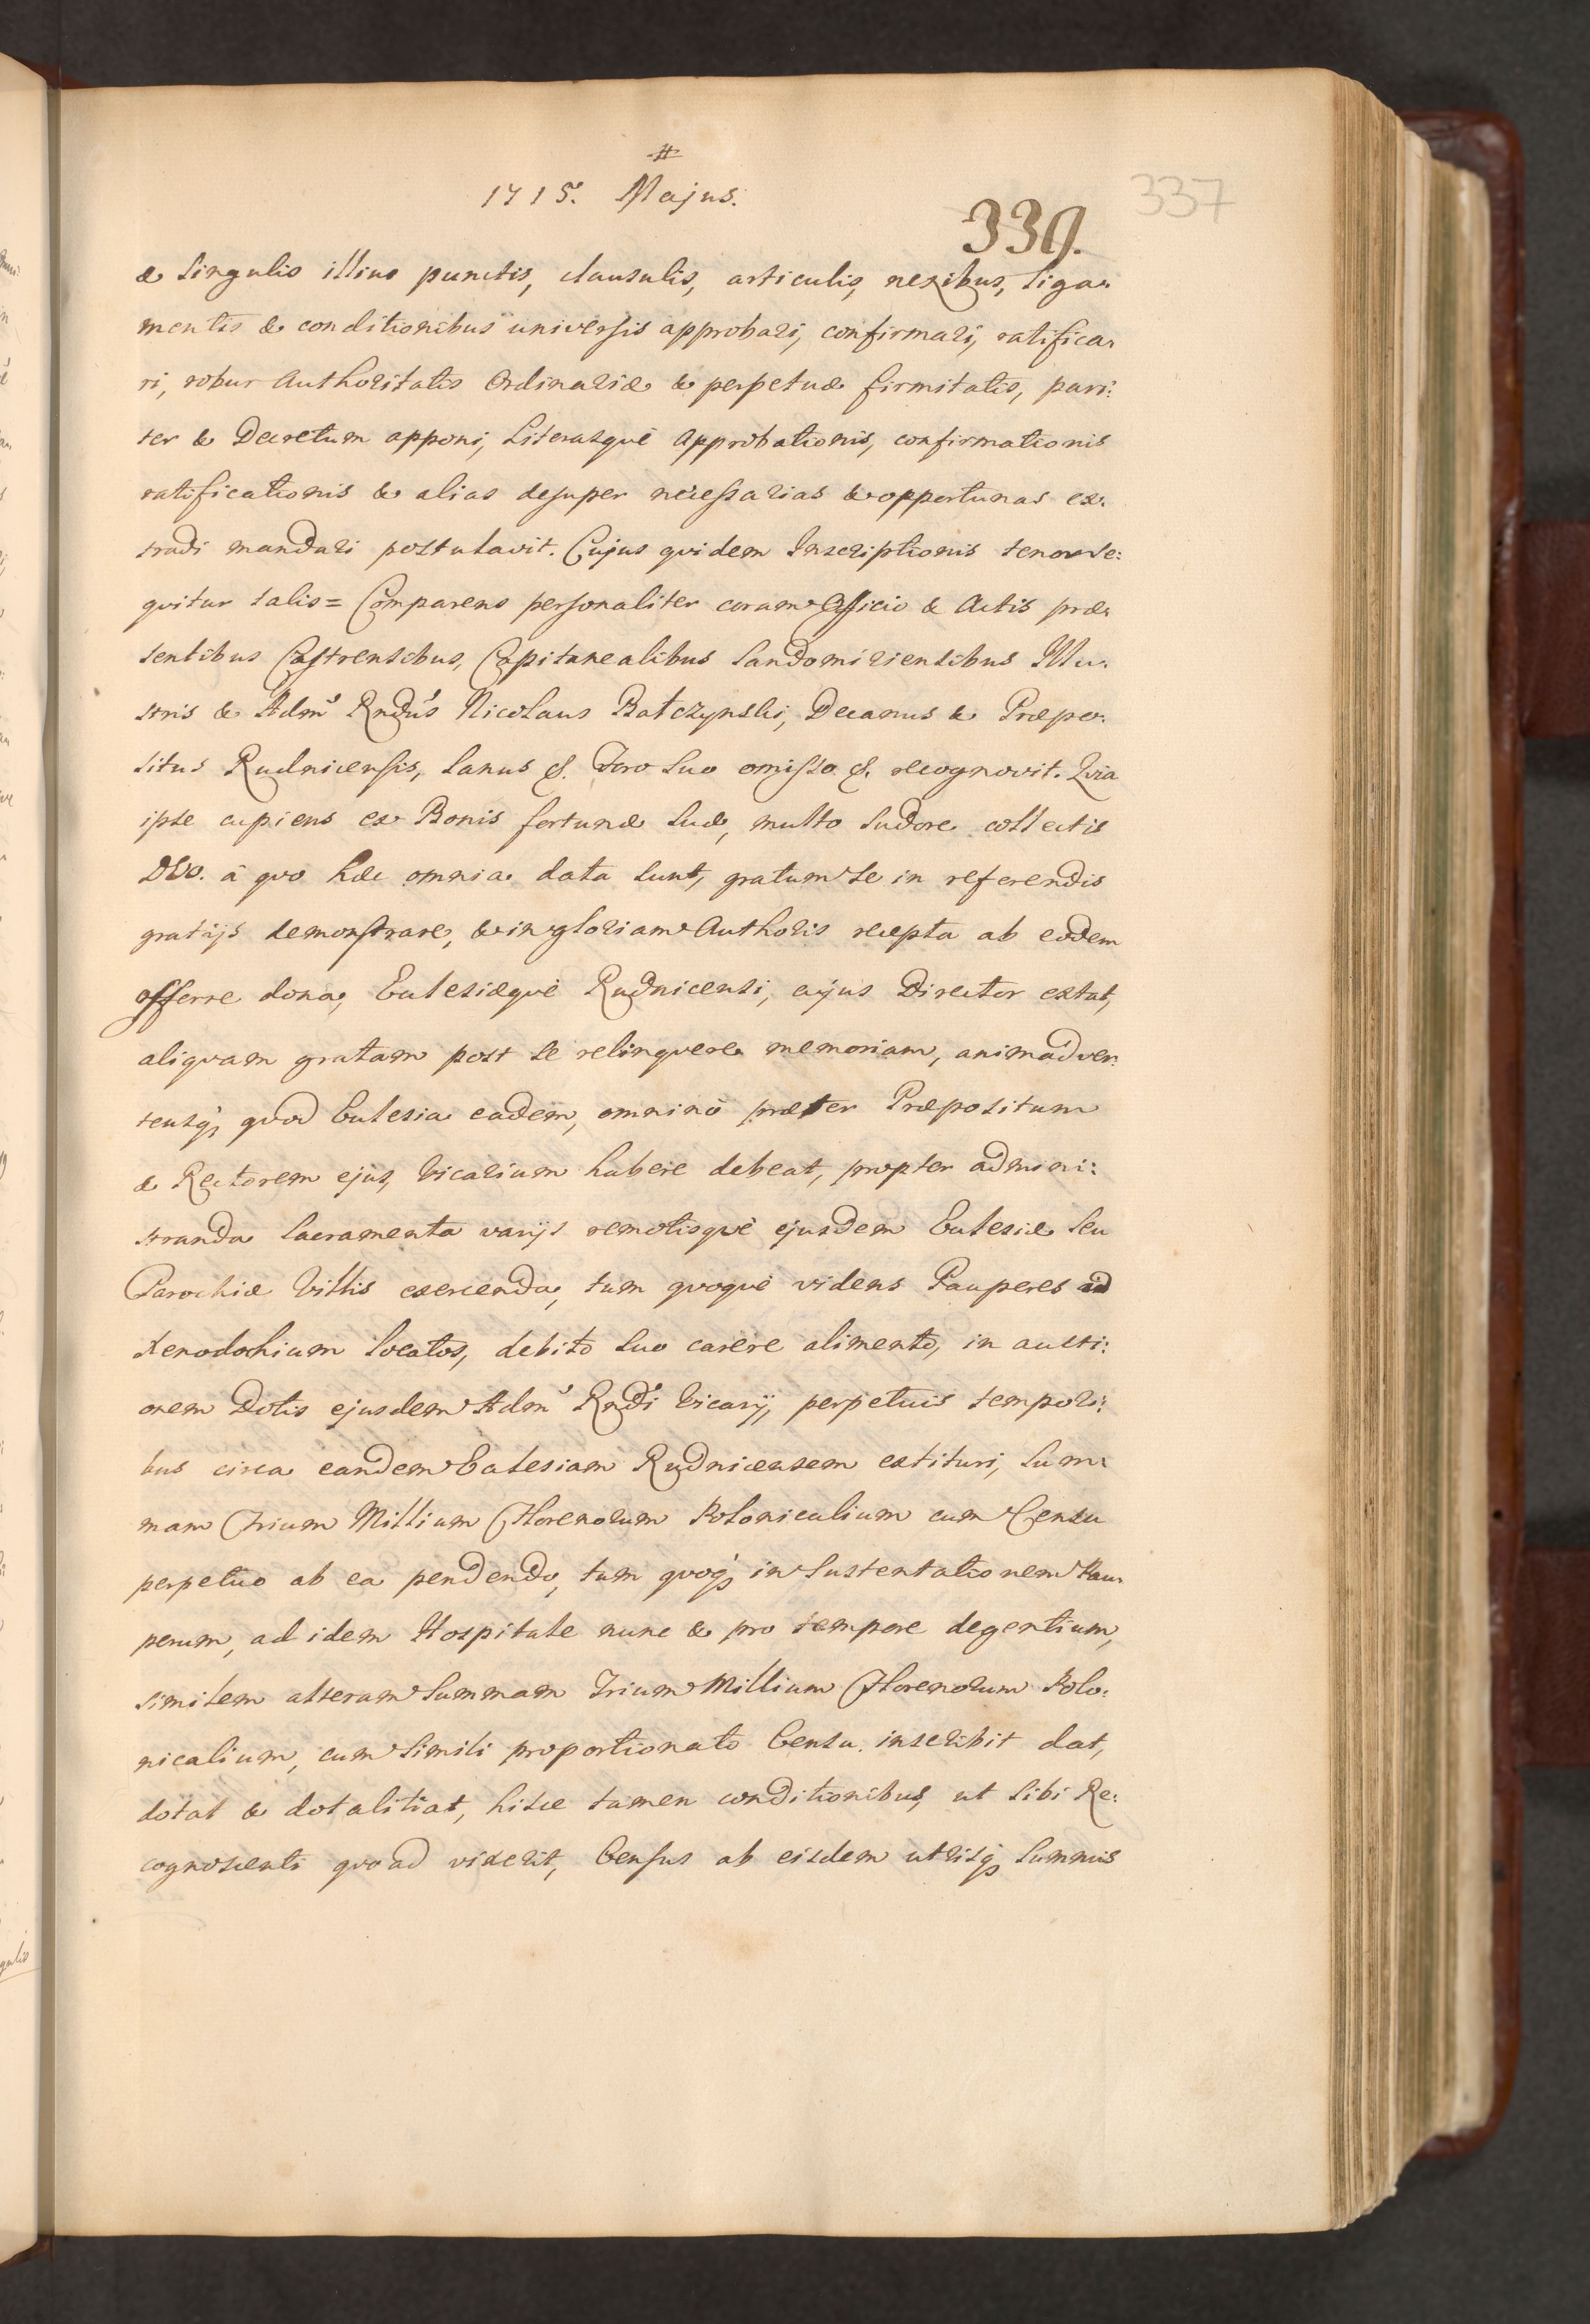 #
1715. Majus.
339.
337
& singulis illius punctis, clausulis, articulis, nexibus, liga-
mentis & conditionibus universis approbari, confirmari, ratifica-
ri, robur Authoritatis Ordinariæ & perpetuæ firmitatis, pari:
ter & Decretum apponi, Literasquè approbationis, confirmationis
ratificationis & alias desuper necessarias & opportunas ex-
tradi mandari postulavit. Cujus qvidem Inscriptionis tenor se:
qvitur talis = Comparens personaliter coram Officio & Actis præ-
sentibus Castrensibus, Capitanealibus Sandomiriensibus Illu-
stris & Adm̃ Rndũs Nicolaus Batczynski, Decanus & Præpo-
situs Rudnicensis, sanus &. Foro suo omisso &. recognovit. Qvia
ipse cupiens ex Bonis fortunæ suæ, multo sudore collectis
DEO. â qvo hæc omnia data sunt, gratum se in referendis
gratijs demonstrare, & in gloriam Authoris recepta ab eodem
offerre dona, Eclesiæquè Rudnicensi, cujus Director extat,
aliqvam gratam post se relinqvere memoriam, animadver-
tensq; qvod Eclesia eadem, omninò præter Præpositum
& Rectorem ejus, Vicarium habere debeat, propter admini:
stranda Sacramenta varijs remotisquè ejusdem Eclesiæ seu
Parochiæ Villis exercenda, tum qvoquè videns Pauperes ad
Xenodochium locatos, debito suo carere alimento, in aucti:
onem Dotis ejusdem Adm̃ Rndi Vicarij, perpetuis tempori:
bus circa eandem Eclesiam Rudnicensem extituri, Sum-
mam Trium Millium Florenorum Polonicalium cum Censu
perpetuo ab ea pendendo, tum qvoq; in Sustentationem Pau-
perum, ad idem Hospitale nunc & pro tempore degentium,
similem alteram Summam Trium Millium Florenorum Polo-
nicalium, cum simili proportionato Censu inscribit dat,
dotat & dotalitiat, hisce tamen conditionibus, ut sibi Re:
cognoscenti qvoad vixerit, Census ab eisdem utrisq; Summis